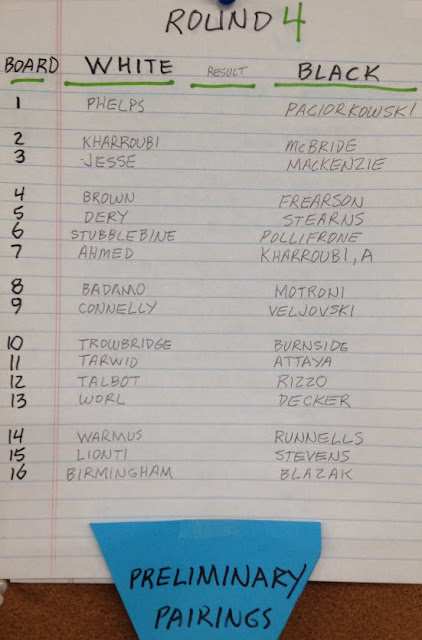 ROUND 4
BOARD WHITE RESULT BLACK
1 PHELPS PACIORKOWSKI
2 KHARROUBI McBRIDE
3 JESSE MACKENZIE
4 BROWN FREARSON
5 DERY STEARNS
6 STUBBLEBINE POLLIFRONE
7 AHMED KHARROUBI, A
8 BADAMO MOTRONI
9 CONNELLY VELJOVSKI
10 TROWBRIDGE BURNSIDE
11 TARWID ATTAYA
12 TALBOT RIZZO
13 WORL DECKER
14 WARMUS RUNNELLS
15 LIONTI STEVENS
16 BIRMINGHAM BLAZAK
PRELIMINARY
PAIRINGS